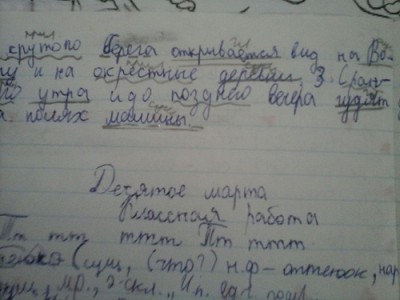 крутого берега открывается вид на Во-
гу и на окрестные деревни. 3. С ран-
го утра и до позднего вечера гудят
полях машины.
Десятое марта
Классная работа
Пт тт ттт Пт ттт
(сущ, (что?) н.ф - оттенок, нар
м.р., 2 скл., И.п. ед.ч.